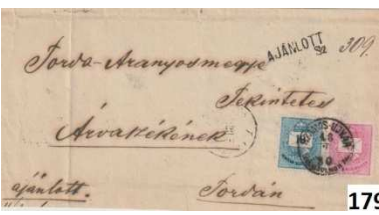 AJÁNLOTT
309.
Torda-Aranyosmegye
Tekintetes
Árvaszékének
ajánlott.
Tordán
179